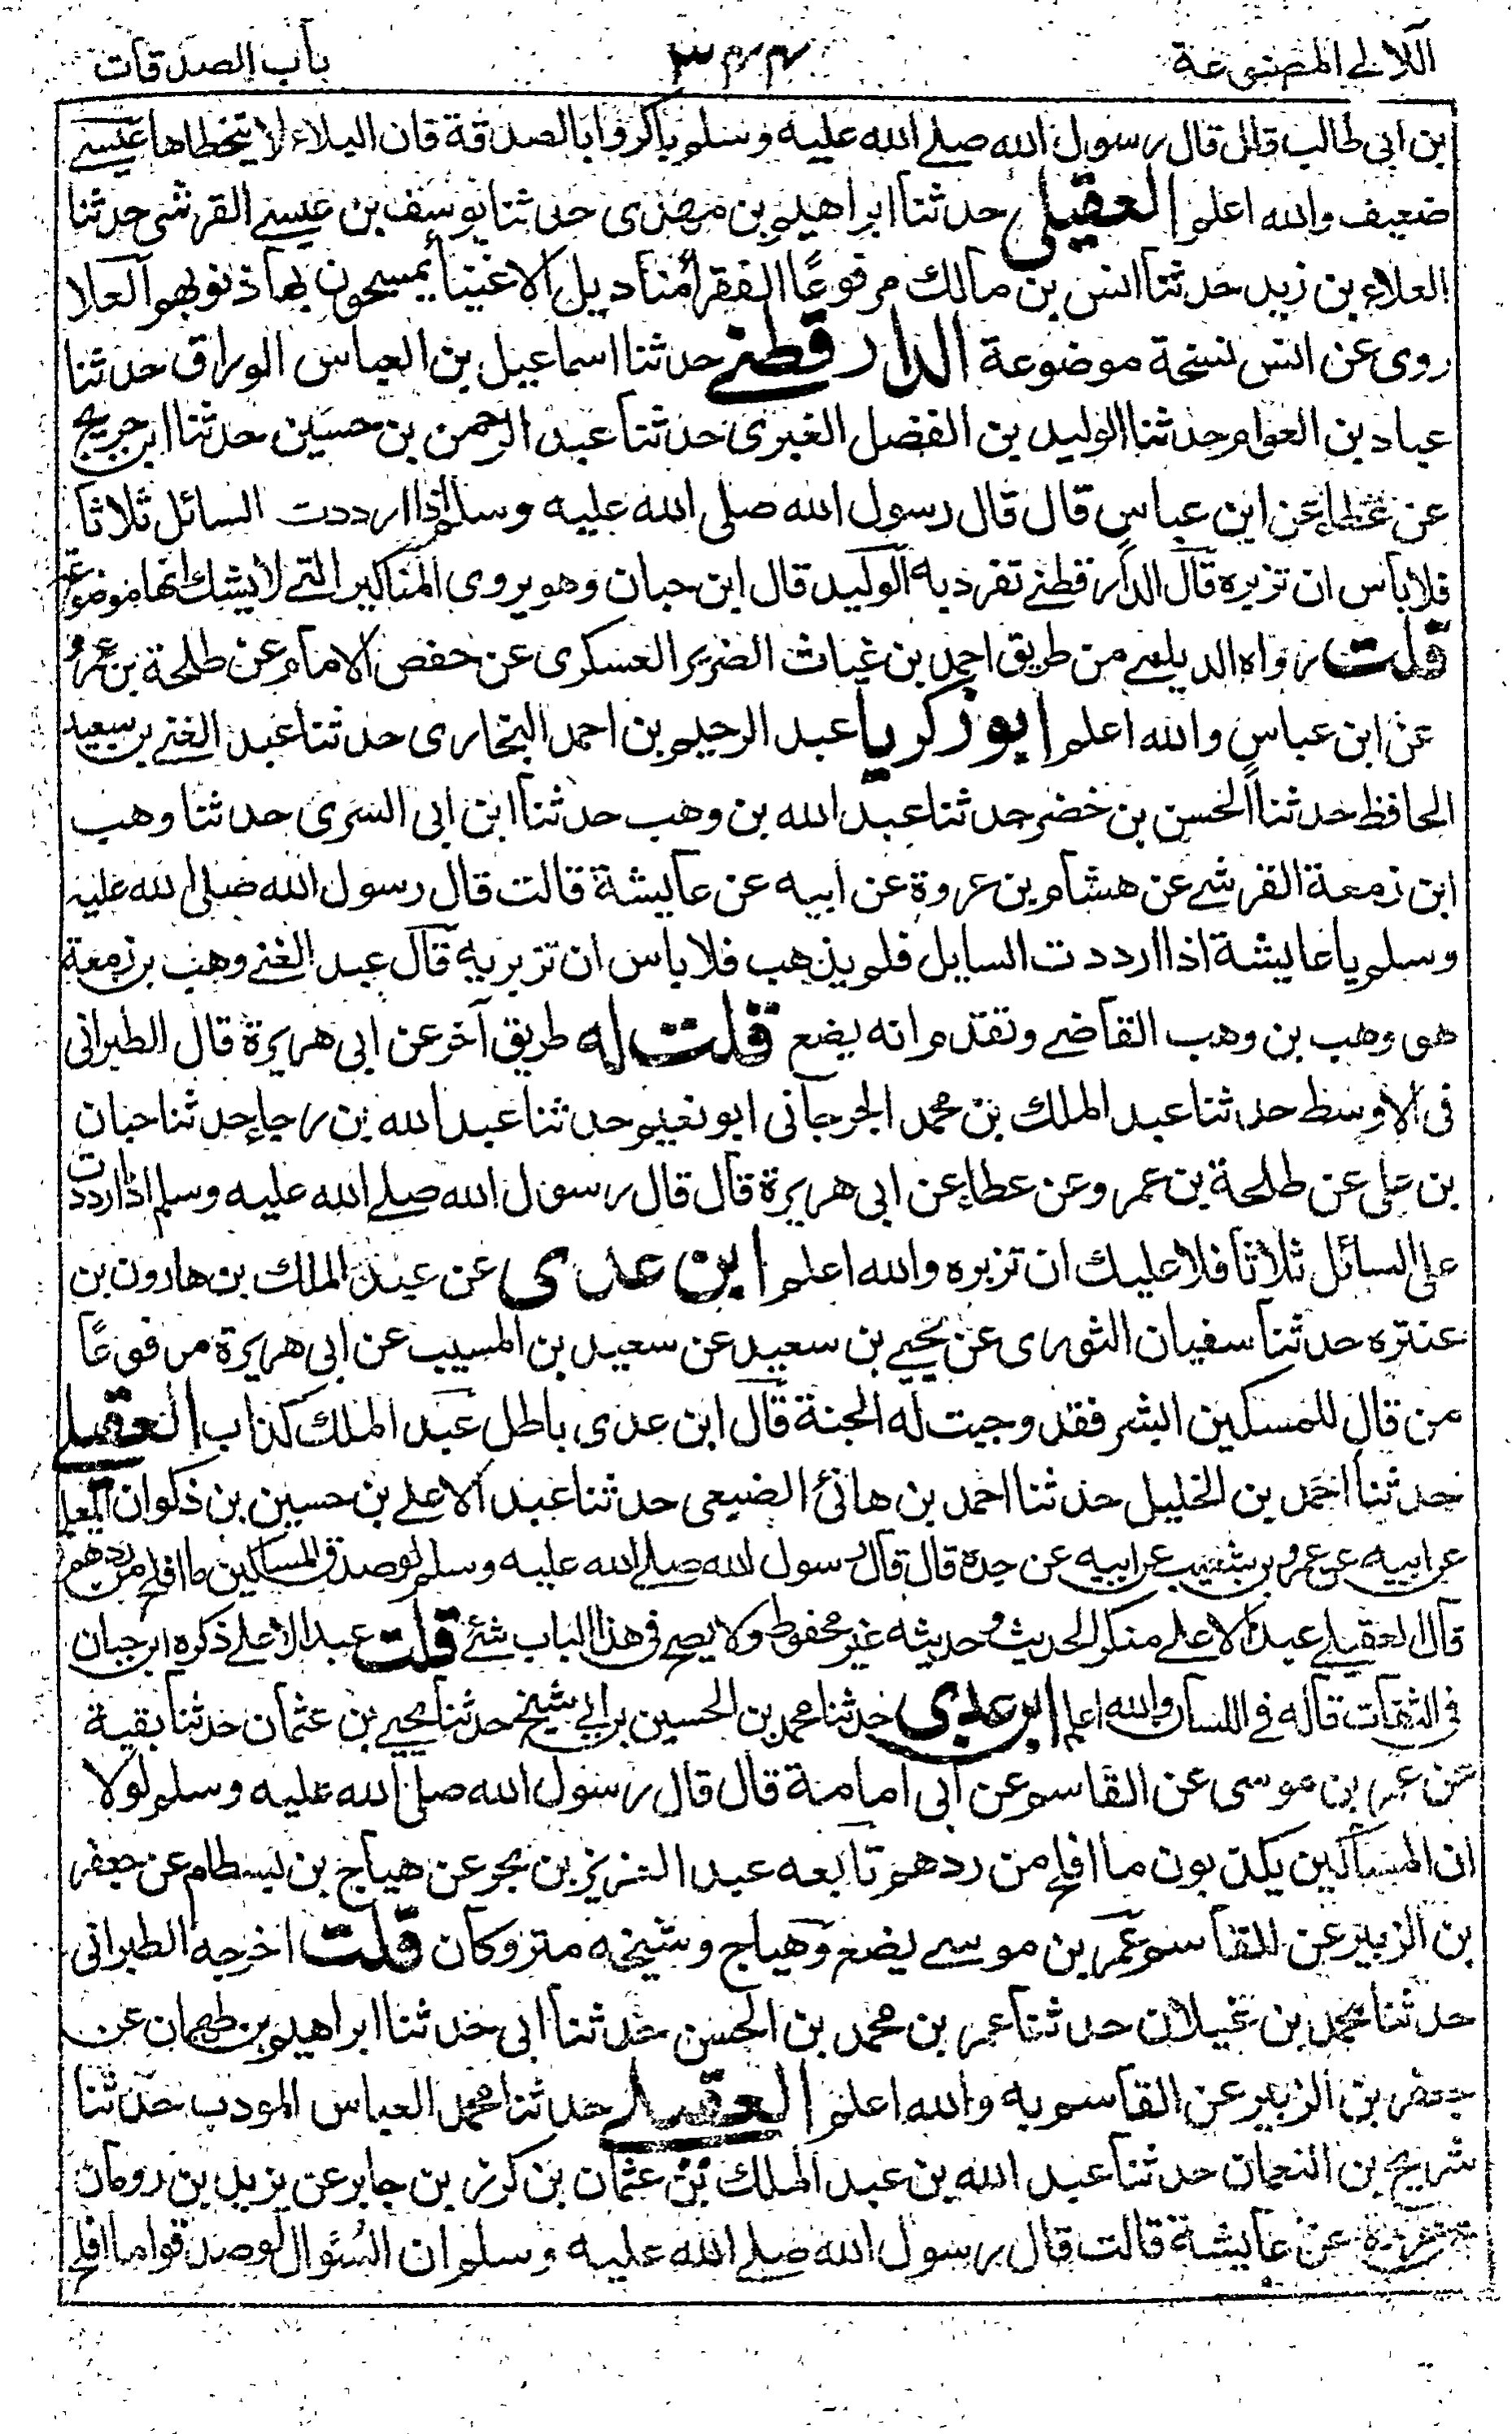 اللالي المصنوعة ٣٤٤ باب الصدقات
بن ابی طالب قال قال رسول الله صلے الله عليه وسلم باكروا بالصدقة فان البلاء لا يتخطاها عيسے
ضعيف والله اعلم العقيلی حدثنا ابراهيم بن مهدی حدثنا يوسف بن عيسے القرشی حدثنا
العلاء بن زيد حدثنا انس بن مالك مرفوعًا الفقرأ مناديل الاغنيا يمسحون بها ذنوبهم العلا
روى عن انس نسخة موضوعة الدارقطنے حدثنا اسماعيل بن العباس الوراق حدثنا
عباد بن العوام حدثنا الوليد بن الفضل الغبری حدثنا عبد الرحمن بن حسين حدثنا ابن جريج
عن عطاء عن ابن عباس قال قال رسول الله صلى الله عليه وسلم اذا ارددت السائل ثلاثا
فلا باس ان تزبره قال الدارقطنے تفرد به الوليد قال ابن حبان وهو يروی المناكير التے لا يشك انها موضوعة
قلت رواه الديلمے من طريق احمد بن غياث الضرير العسكری عن حفص الامام عن طلحة بن عمرو
عن ابن عباس والله اعلم ابو زكريا عبد الرحيم بن احمد البخاری حدثنا عبد الغنے بن سعيد
الحافظ حدثنا الحسن بن خضر حدثنا عبد الله بن وهب حدثنا ابن ابی السری حدثنا وهب
ابن زمعة القرشے عن هشام بن عروة عن ابيه عن عايشة قالت قال رسول الله صلى الله عليه
وسلم يا عايشة اذا ارددت السايل فلم يذهب فلا باس ان تزبريه قال عبد الغنے وهب بن زمعة
هو وهب بن وهب القاضے وتقدم انه يضع قلت له طريق آخر عن ابی هريرة قال الطبرانی
فی الاوسط حدثنا عبد الملك بن محمد الجرجانی ابو نعيم حدثنا عبد الله بن رجاء حدثنا حبان
بن علی عن طلحة بن عمر وعن عطاء عن ابی هريرة قال قال رسول الله صلے الله عليه وسلم اذا رددت
على السائل ثلاثا فلا عليك ان تزبره والله اعلم ابن عدی عن عبد الملك بن هارون بن
عنتره حدثنا سفيان الثوری عن يحيے بن سعيد عن سعيد بن المسيب عن ابی هريرة مرفوعًا
من قال للمسكين ابشر فقد وجبت له الجنة قال ابن عدی باطل عبد الملك كذاب العقيلے
حدثنا احمد بن الخليل حدثنا احمد بن هانئ الضبعی حدثنا عبد الاعلے بن حسين بن ذكوان المعلم
عن ابيه عن عمرو بن شعيب عن ابيه عن جده قال قال رسول الله صلے الله عليه وسلم لو صدق المساكين ما افلح من ردهم
قال العقيلے عبد الاعلے منكر الحديث وحديثه غير محفوظ ولا يصح فی هذا الباب شئے قلت عبد الاعلے ذكره ابن حبان
فی الثقات قاله فے اللسان والله اعلم ابن عدی حدثنا محمد بن الحسين بن ابی شيخ حدثنا يحيے بن عثمان حدثنا بقية
عن عمر بن موسى عن القاسم عن ابی امامة قال قال رسول الله صلى الله عليه وسلم لولا
ان المساكين يكذبون ما افلح من ردهم تابعه عبد العزيز بن بحر عن هياج بن بسطام عن جعفر
بن الزبير عن القاسم وعمر بن موسے يضع وهياج وشيخه متروكان قلت اخرجه الطبرانی
حدثنا محمد بن غيلان حدثنا عمر بن محمد بن الحسن حدثنا ابی حدثنا ابراهيم بن طهمان عن
جعفر بن الزبير عن القاسم به والله اعلم العقيلے حدثنا محمد العباس المودب حدثنا
شريح بن النعمان حدثنا عبد الله بن عبد الملك بن عثمان بن كرز بن جابر عن يزيد بن رومان
عن عايشة قالت قال رسول الله صلے الله عليه وسلم ان السُؤال لو صدقوا ما افلح